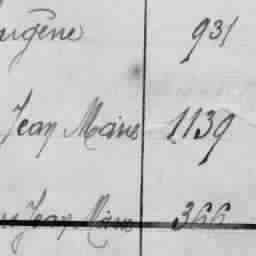 Eugène 931
Jean Marie 1139
Jean Marie 366